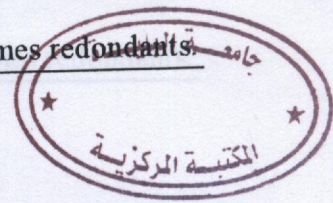 mes redondants.
جامعـة
المكتبـــة المركزيـــة